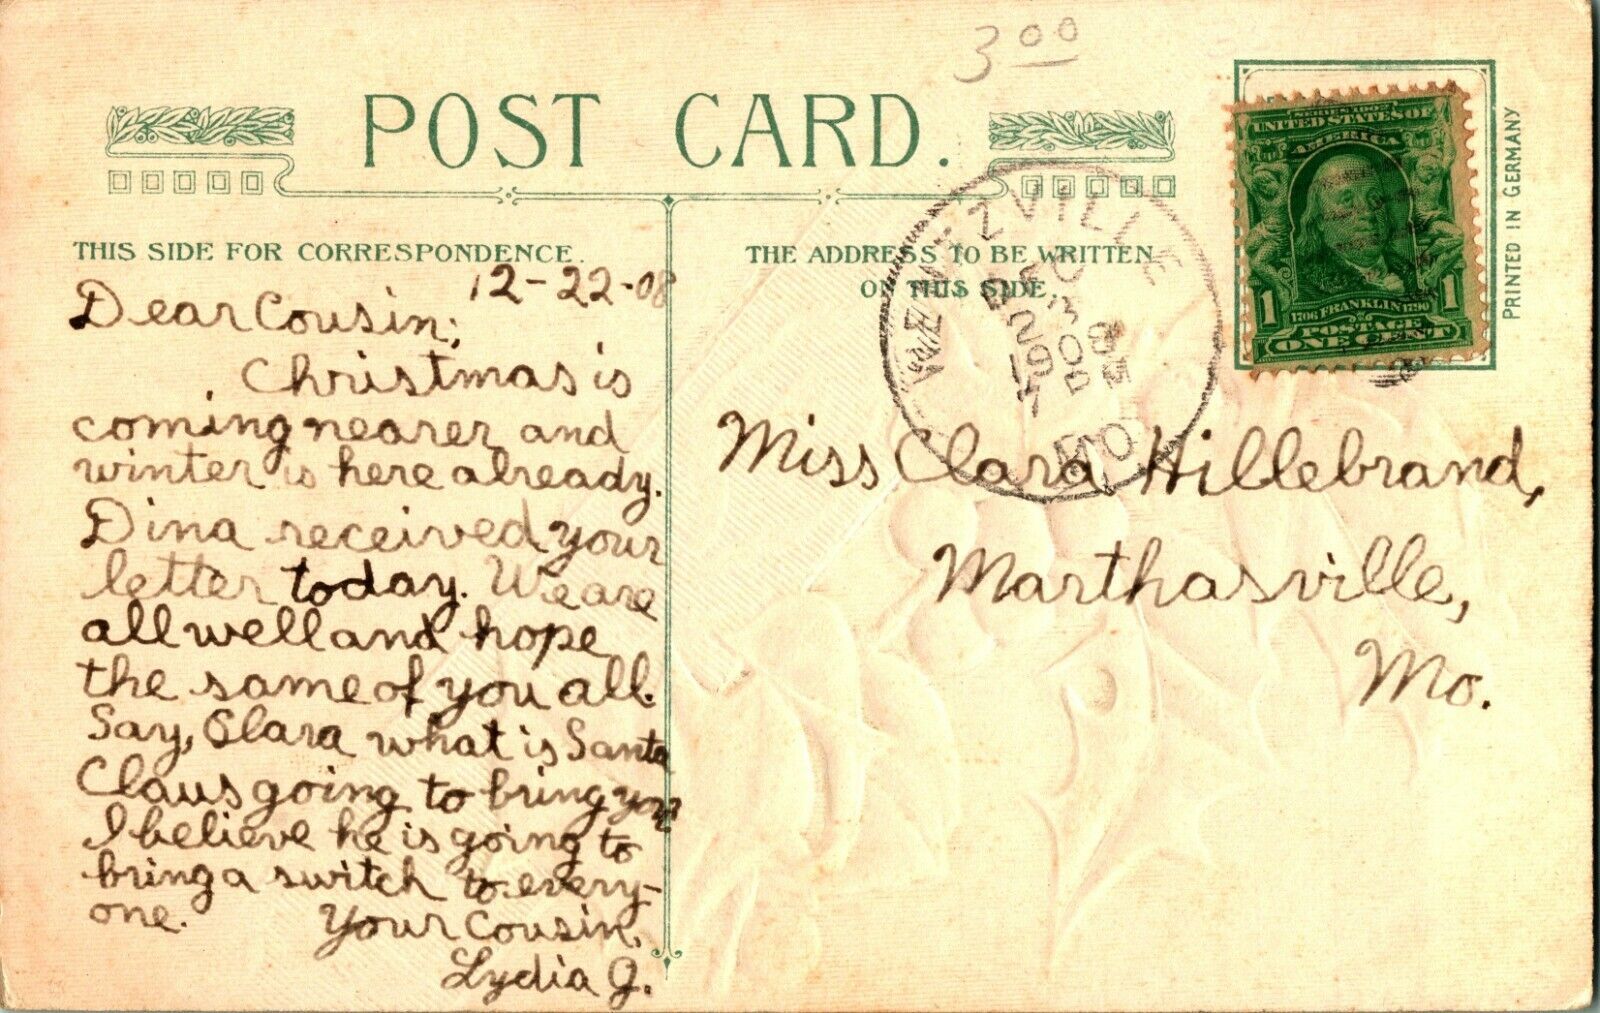 3 00
POST CARD.
UNITED STATES OF
AMERICA
1 1706 FRANKLIN 1790 1
POSTAGE
ONE CENT
PRINTED IN GERMANY
WENTZVILLE
DEC
23
1908
7 PM
MO.
THIS SIDE FOR CORRESPONDENCE.
12-22-08
Dear Cousin;
Christmas is
coming nearer and
winter is here already.
Dina received your
letter today. We are
all well and hope
the same of you all.
Say, Clara what is Santa
Claus going to bring you?
I believe he is going to
bring a switch to every-
one.
Your Cousin,
Lydia G.
THE ADDRESS TO BE WRITTEN
ON THIS SIDE.
Miss Clara Hillebrand,
Marthasville,
Mo.